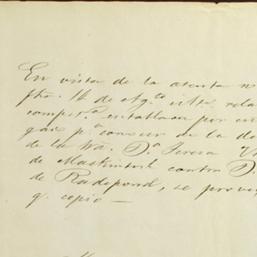 En vista de la atenta n
fha. 14 de Ag.to últº. rela
compt.a entablaar por
p.a conocer de la de
de la Sra. D.a Teresa V
de contra D.
de Radepond, se prove
q. copio —